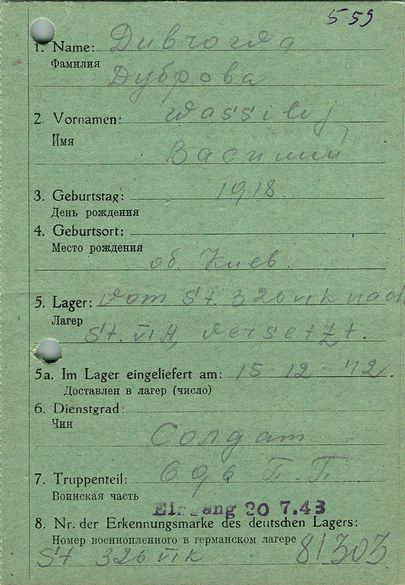 559
1. Name: Дивчогляд
Фамилия
Дуброва
2 Vornamen: Wassilij
Имя
Василий
3. Geburtstag: 1918.
День рождения
4. Geburtsort:
Место рождения
об. Киев.
5. Lager: Vom St. 326 VIK nach
Лагер
St. VIA versetzt.
5a. Im Lager eingeliefert am: 15 12 42.
Доставлен в лагер (число)
6. Dienstgrad:
Чин
Солдат
7. Truppenteil: П.П.
Воинская часть
Eingang 20 7.43
8. Nr. der Erkennungsmarke des deutschen Lagers:
Номер военнопленного в германском лагере 81303
St 326 VIK